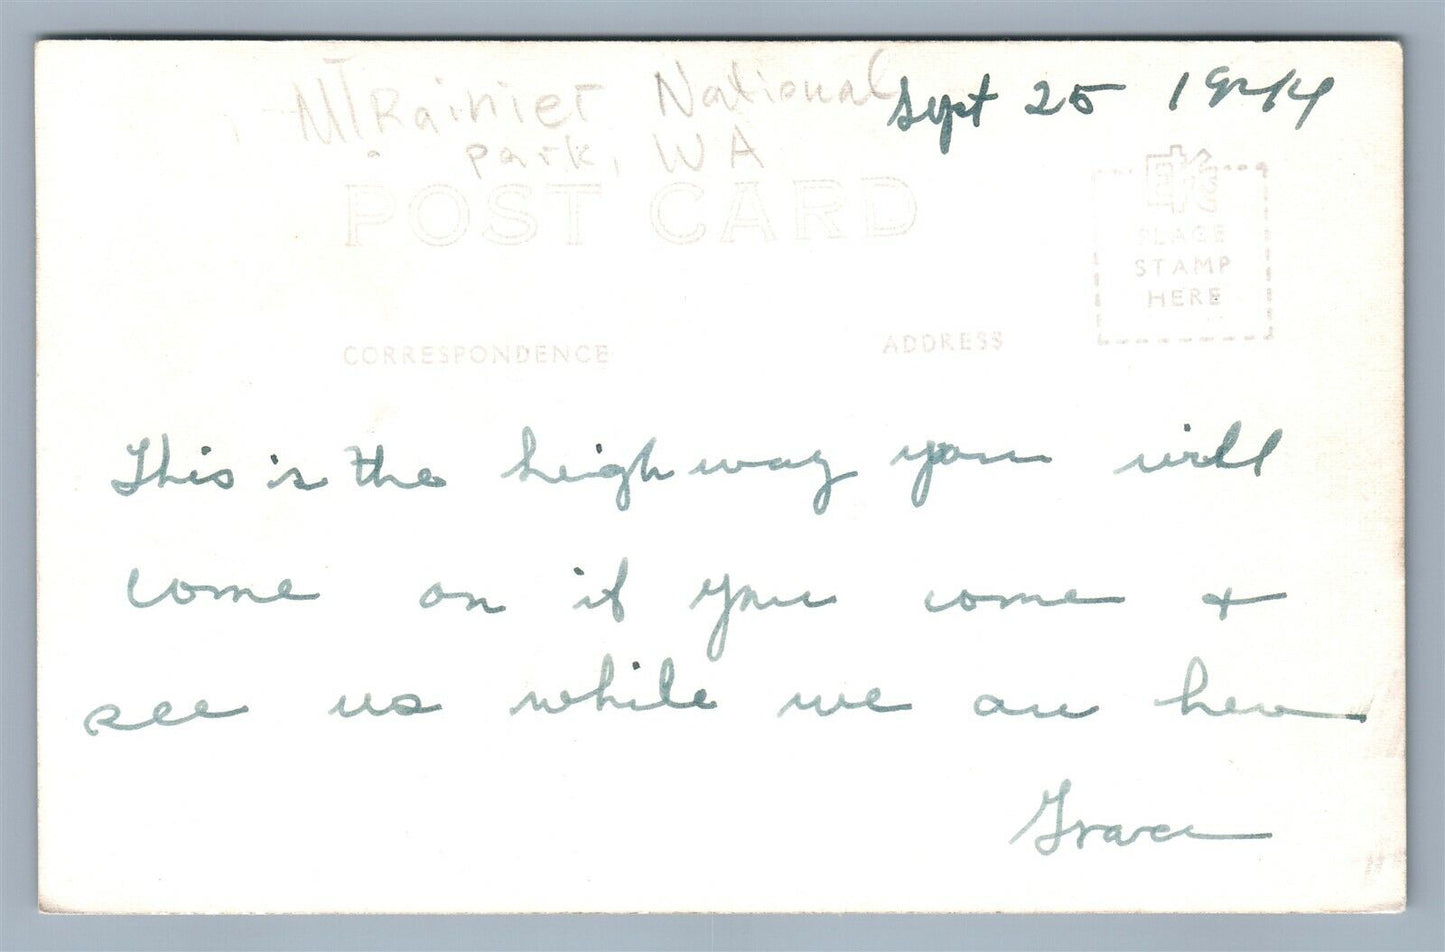 MT Rainier National
Park, WA
Sept 25 1944
POST CARD
EKC
PLACE
STAMP
HERE
CORRESPONDENCE
ADDRESS
This is the heighway you will
come on if you come &
see us while we are here
Grace